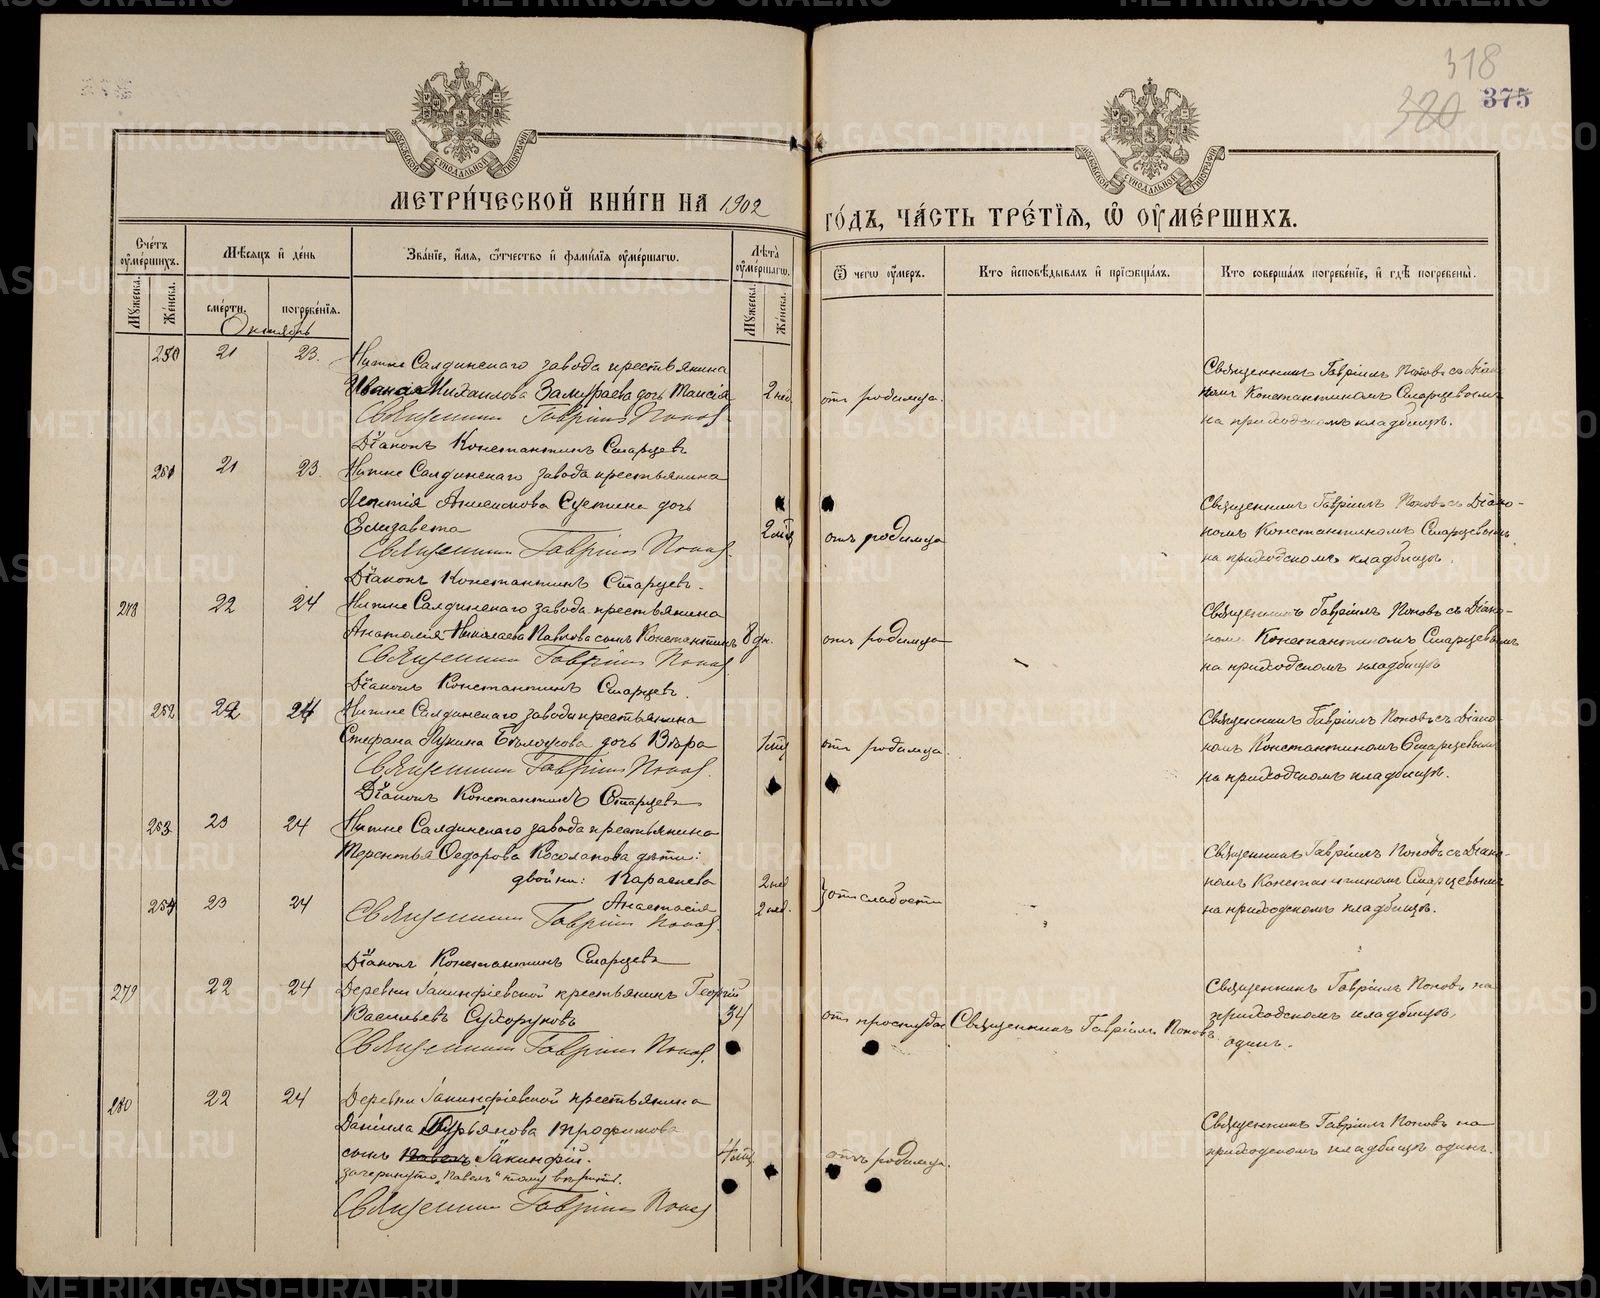 318
320
375
МЕТРИ́ЧЕСКОЙ КНИ́ГИ НА 1902
ГО́ДЪ, ЧА́СТЬ ТРЕ́ТІѦ, Ѡ ОУМЕ́РШИХЪ.
Сче́тъ оумершихъ.
Мужеска.
Женска.
Мѣсяцъ и день
смерти.
погребенія.
Званіе, имя, отчество и фамилія оумершаго.
Лѣта оумершаго.
Мужеска.
Женска.
Ѿ чего оумеръ.
Кто исповѣдывалъ и пріобщалъ.
Кто совершалъ погребеніе, и гдѣ погребены.
Октябрь
250 21 23. Нижне Салдинскаго завода крестьянина
Ивана Михаилова Замураева дочь Таисія 2 нед. отъ родимца.
Священникъ Гавріилъ Поповъ
Діаконъ Константинъ Старцевъ
Священникъ Гавріилъ Поповъ съ Діако
номъ Константиномъ Старцевымъ
на приходскомъ кладбищѣ.
251 21 23. Нижне Салдинскаго завода крестьянина
дочь
Елизавета 2 мѣс отъ родимца
Священникъ Гавріилъ Поповъ
Діаконъ Константинъ Старцевъ.
Священникъ Гавріилъ Поповъ съ Діако-
номъ Константиномъ Старцевымъ
на приходскомъ кладбищѣ.
278 22 24 Нижне Салдинскаго завода крестьянина
Анатолія Николаева Павлова сынъ Константинъ 8 дн. отъ родимца
Священникъ Гавріилъ Поповъ
Діаконъ Константинъ Старцевъ.
Священникъ Гавріилъ Поповъ съ Діако-
номъ Константиномъ Старцевымъ
на приходскомъ кладбищѣ
252 22 24 Нижне Салдинскаго завода крестьянина
Стефана Лукина Бѣлоусова дочь Вѣра 1 мѣс отъ родимца.
Священникъ Гавріилъ Поповъ.
Діаконъ Константинъ Старцевъ
Священникъ Гавріилъ Поповъ съ Діако
номъ Константиномъ Старцевымъ
на приходскомъ кладбищѣ.
253 23 24 Нижне Салдинскаго завода крестьянина
Терентья Ѳедорова Косолапова дѣти:
двойни: Параскева 2 нед
254 23 24 Анастасія 2 нед. отъ слабости
Священникъ Гавріилъ Поповъ.
Діаконъ Константинъ Старцевъ
Священникъ Гавріилъ Поповъ съ Діако-
номъ Константиномъ Старцевымъ
на приходскомъ кладбищѣ.
279 22 24 Деревни Іакинфіевской крестьянинъ Георгій
Васильевъ Сухоруковъ 34 отъ простуды Священникъ Гавріилъ Поповъ.
Священникъ Гавріилъ Поповъ.
Священникъ Гавріилъ Поповъ на
приходскомъ кладбищѣ,
одинъ.
280 22 24 Деревни Іакинфіевской крестьянина
Даніила Курьянова Трофимова
сынъ Павелъ Іакинфій. 4 мѣс отъ родимца.
зачеркнуто „Павелъ" тому вѣрить.
Священникъ Гавріилъ Поповъ
Священникъ Гавріилъ Поповъ на
приходскомъ кладбищѣ одинъ.
METRIKI.GASO-URAL.RU